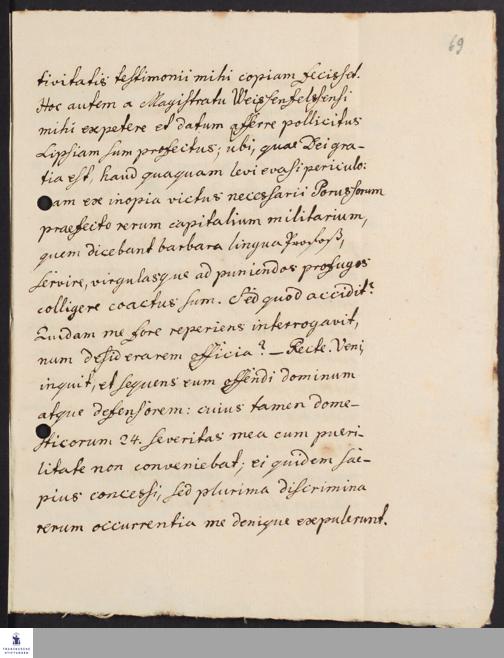 69
tivitatis testimonii mihi copiam fecisset.
Hoc autem a Magistratu Weissenfelssensi
mihi expetere et datum afferre pollicitus
Lipsiam sum profectus; ubi, quae Dei gra-
tia est, haud quaquam levi evasi periculo:
am ex inopia victus necessarii Porussorum
praefecto rerum capitalium militarium,
quem dicebant barbara lingua Profoß,
servire, virgulasque ad puniendos profugos
colligere coactus sum. Sed quod accidit?
Quidam me fore reperiens interrogavit,
num desiderarem officia? — Recte. Veni,
inquit, et sequens eum offendi dominum
atque defensorem: cuius tamen dome-
sticorum 24. severitas mea cum pueri-
litate non conveniebat; ei quidem sae-
pius concessi, sed plurima discrimina
rerum occurrentia me denique expulerunt.
FRANCKESCHE
STIFTUNGEN